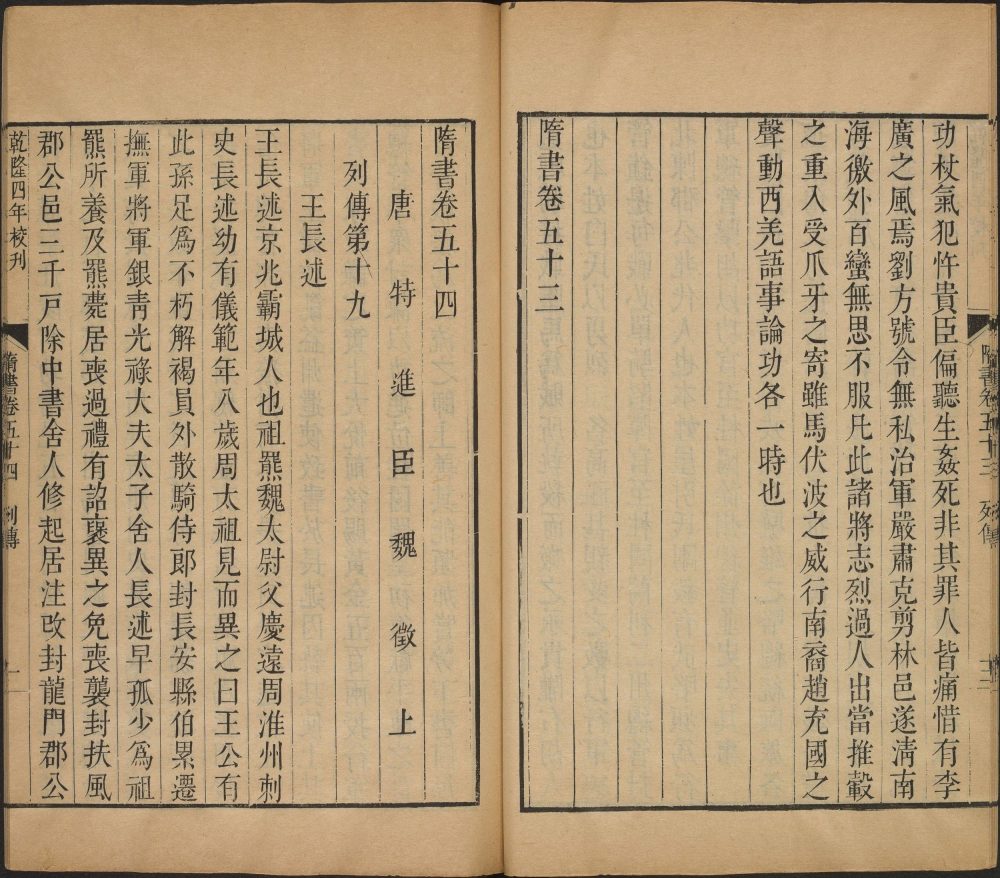 功杖氣犯忤貴臣偏聽生姦死非其罪人皆痛惜有李
廣之風焉劉方號令無私治軍嚴肅克剪林邑遂淸南
海徼外百蠻無思不服凡此諸將志烈過人出當推轂
之重入受爪牙之寄雖馬伏波之威行南裔趙充國之
聲動西羌語事論功各一時也
隋書卷五十三
隋書卷五十四
唐特進臣魏徵上
列傳第十九
王長述
王長述京兆霸城人也祖羆魏太尉父慶遠周淮州刺
史長述幼有儀範年八歲周太祖見而異之曰王公有
此孫足爲不朽解褐員外散騎侍郎封長安縣伯累遷
撫軍將軍銀靑光祿大夫太子舍人長述早孤少爲祖
羆所養及羆薨居喪過禮有詔襃異之免喪襲封扶風
郡公邑三千戸除中書舍人修起居注改封龍門郡公
乾隆四年校刊
隋書卷五十四 列傳 一